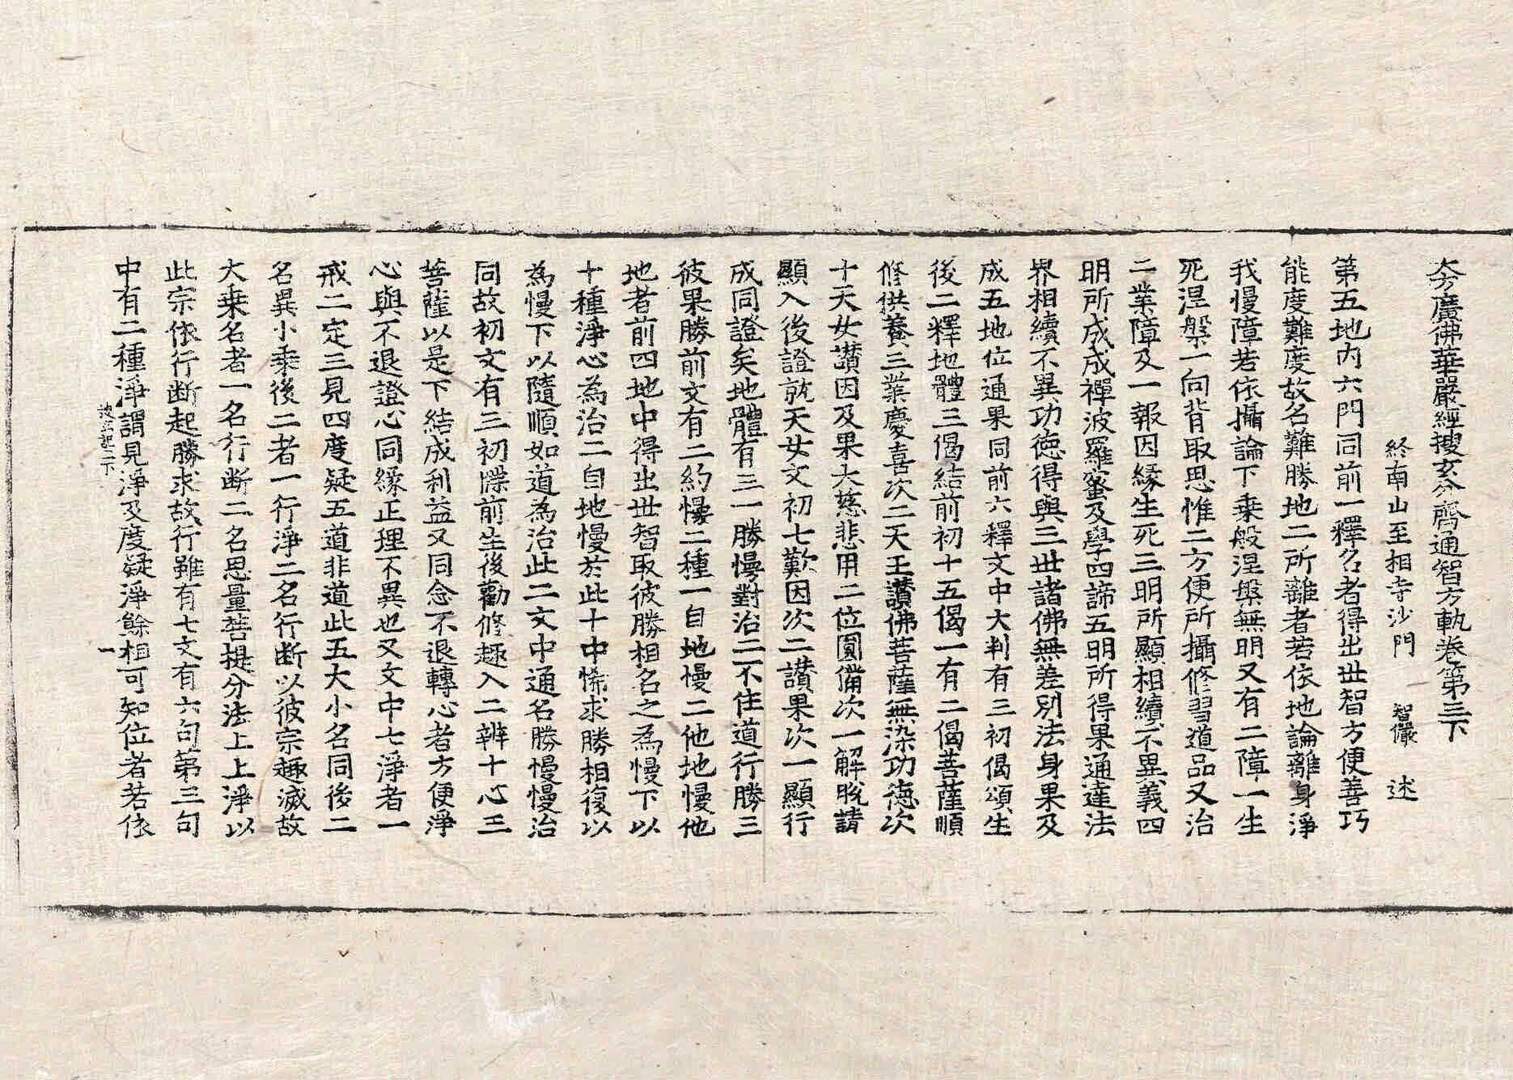 大方廣佛華嚴經搜玄分齊通智方軌卷第三下
終南山至相寺沙門 智儼 述
第五地内六門同前一釋名者得出世智方便善巧
能度難度故名難勝地二所離者若依地論離身淨
我慢障若依攝論下乗般涅槃無明又有二障一生
死涅槃一向背取思惟二方便所攝修習道品又治
二業障及一報因緣生死三明所顯相續不異義四
明所成成禪波羅蜜及學四諦五明所得果通達法
界相續不異功徳得與三世諸佛無差別法身果及
成五地位通果同前六釋文中大判有三初偈頌生
後二釋地體三偈結前初十五偈一有二偈菩薩順
修供養三業慶喜次二天王讃佛菩薩無染功徳次
十天女讃因及果大慈悲用二位圓備次一解脫請
顯入後證就天女文初七歎因次二讃果次一顯行
成同證矣地體有三一勝慢對治二不住道行勝三
彼果勝前文有二約慢二種一自地慢二他地慢他
地者前四地中得出世智取彼勝相名之為慢下以
十種淨心為治二自地慢於此十中悕求勝相復以
為慢下以隨順如道為治此二文中通名勝慢慢治
同故初文有三初牒前生後勸修趣入二辨十心三
菩薩以是下結成利益又同念不退轉心者方便淨
心與不退證心同緣正理不異也又文中七淨者一
戒二定三見四度疑五道非道此五大小名同後二
名異小乗後二者一行淨二名行断以彼宗趣滅故
大乗名者一名行断二名思量菩提分法上上淨以
此宗依行断起勝求故行雖有七文有六句第三句
中有二種淨謂見淨及度疑淨餘相可知位者若依
一